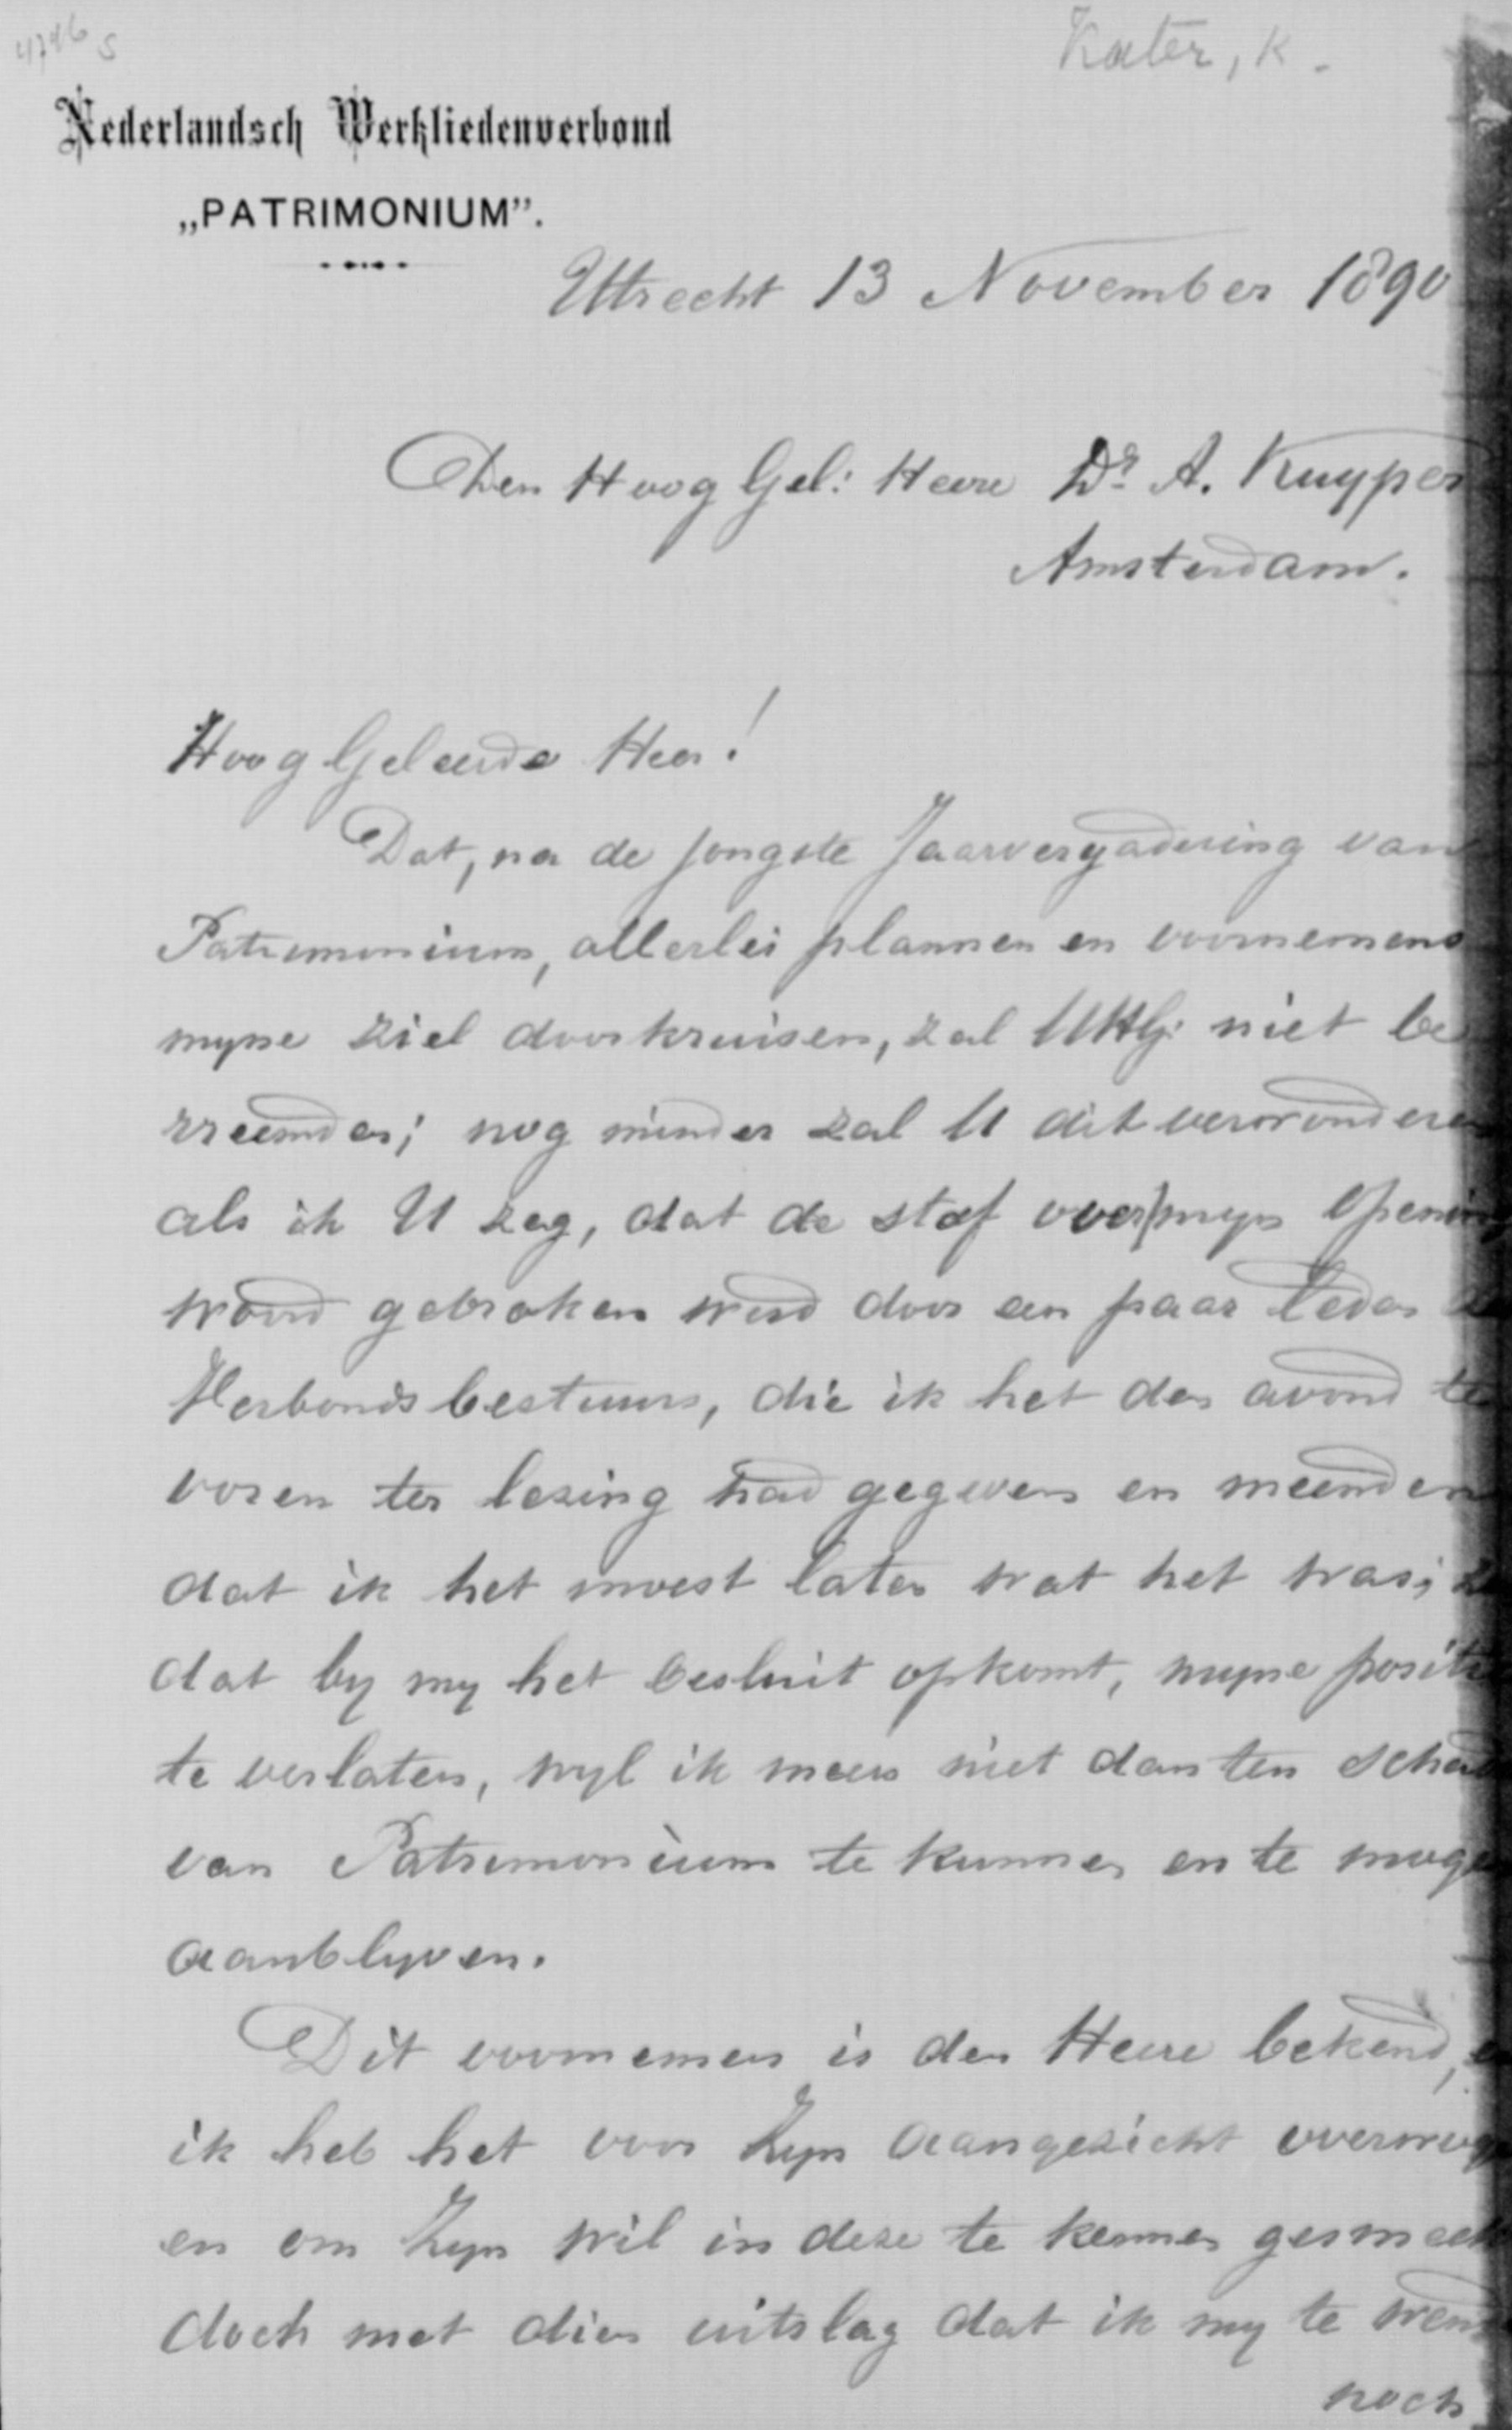 4746 s
Kater, K.
Nederlandsch Werkliedenverbond
„PATRIMONIUM”.
Uttrecht 13 November 1890
Den Hoog Gel: Heere Dr. A. Kuyper
Amsterdam.
Hoog Geleerde Heer!
Dat, na de jongste Jaarvergadering van
Patrimonium, allerlei plannen en voornemens
myne ziel doorkruisen, zal UHG: niet be
vreemden; nog minder zal U dit verwonderen
als ik U zeg, dat de staf over myn Opening
woord gebroken werd door een paar Leden
Verbondsbestuurs, die ik het den avond te
voren ter lezing had gegeven en meenden
dat ik het moest laten wat het was;
dat by my het besluit opkomt, myne positie
te verlaten, wyl ik meen niet dan ten schade
van Patrimonium te kunnen en te mogen
aanblyven.
Dit voornemen is den Heere bekend,
ik heb het voor Zyn aangezicht overwogen
en om Zyn wil in deze te kennen gesmeekt
doch met dien uitslag dat ik my te wend
noch